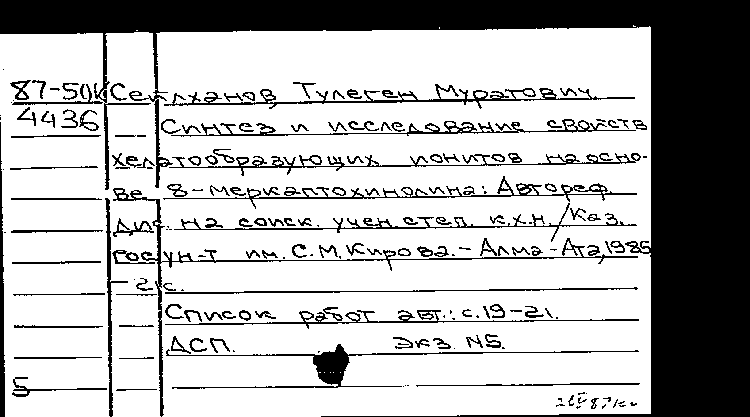 87-50К Сейлханов, Тулеген Муратович
4436 Синтез и исследование свойств
хелатообразующих ионитов на осно-
ве 8-меркаптохинолина: Автореф.
дис. на соиск. учен. степ. к.х.н. / Каз.
гос ун-т им. С.М. Кирова. - Алма-Ата, 1986
- 21 с.
Список работ авт.: с. 19-21.
ДСП. Экз N5.
5